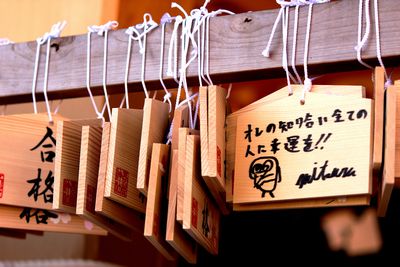 合格
オレの知り合い全ての
人に幸運を!!
mitsuru